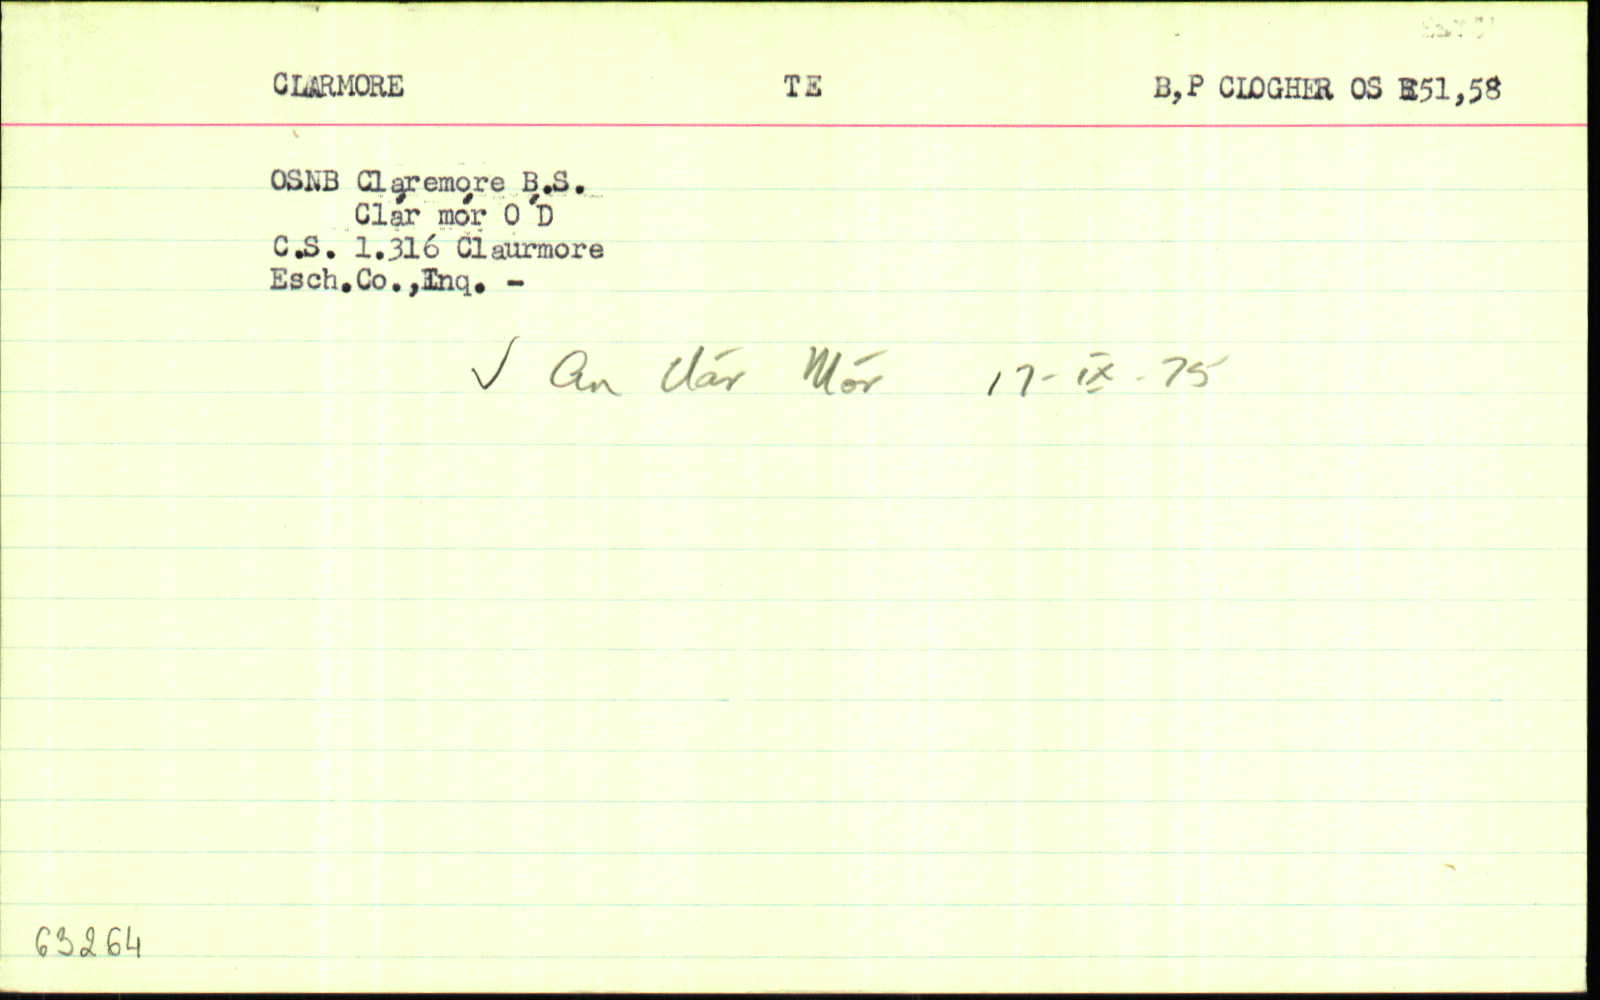 CLARMORE TE B,P CLOGHER OS 51,58
OSNB Claremore B.S.
Clár mór O'D
C.S. 1.316 Claurmore
Esch.Co.,Inq. -
✓ An Clár Mór 17-IX-75
63264